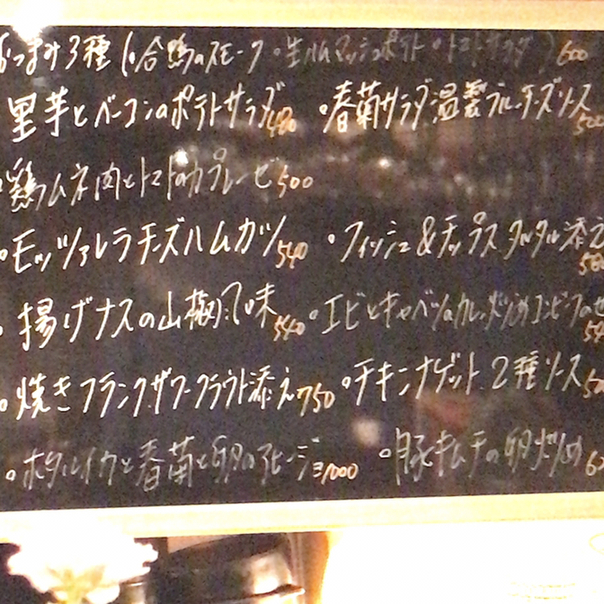 おつまみ3種(・合鴨のスモーク・生ハムマッシュポテト・トマトサラダ)600
里芋とベーコンのポテトサラダ480 ・春菊サラダ温製ブルーチーズソース500
・鶏ムネ肉とトマトのカプレーゼ500
・モッツァレラチーズハムカツ540 ・フィッシュ&チップスタルタル添え
・揚げナスの山椒風味540 ・エビとキャベツのカレー炒めコンビーフのせ
・焼きフランクザワークラウト添え750 ・チキンナゲット2種ソース
・ホタルイカと春菊と卵のアヒージョ1000 ・豚キムチの卵炒め